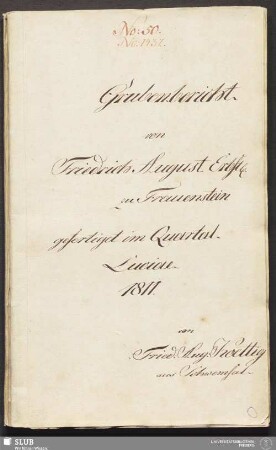 No: 50.
No: 1937.
Grubenbericht
von
Friedrich August Erbst.
zu Frauenstein
gefertiget im Quartal
Luciae
1811
von
Fried. Aug.
aus
SLUB
Wir führen Wissen.